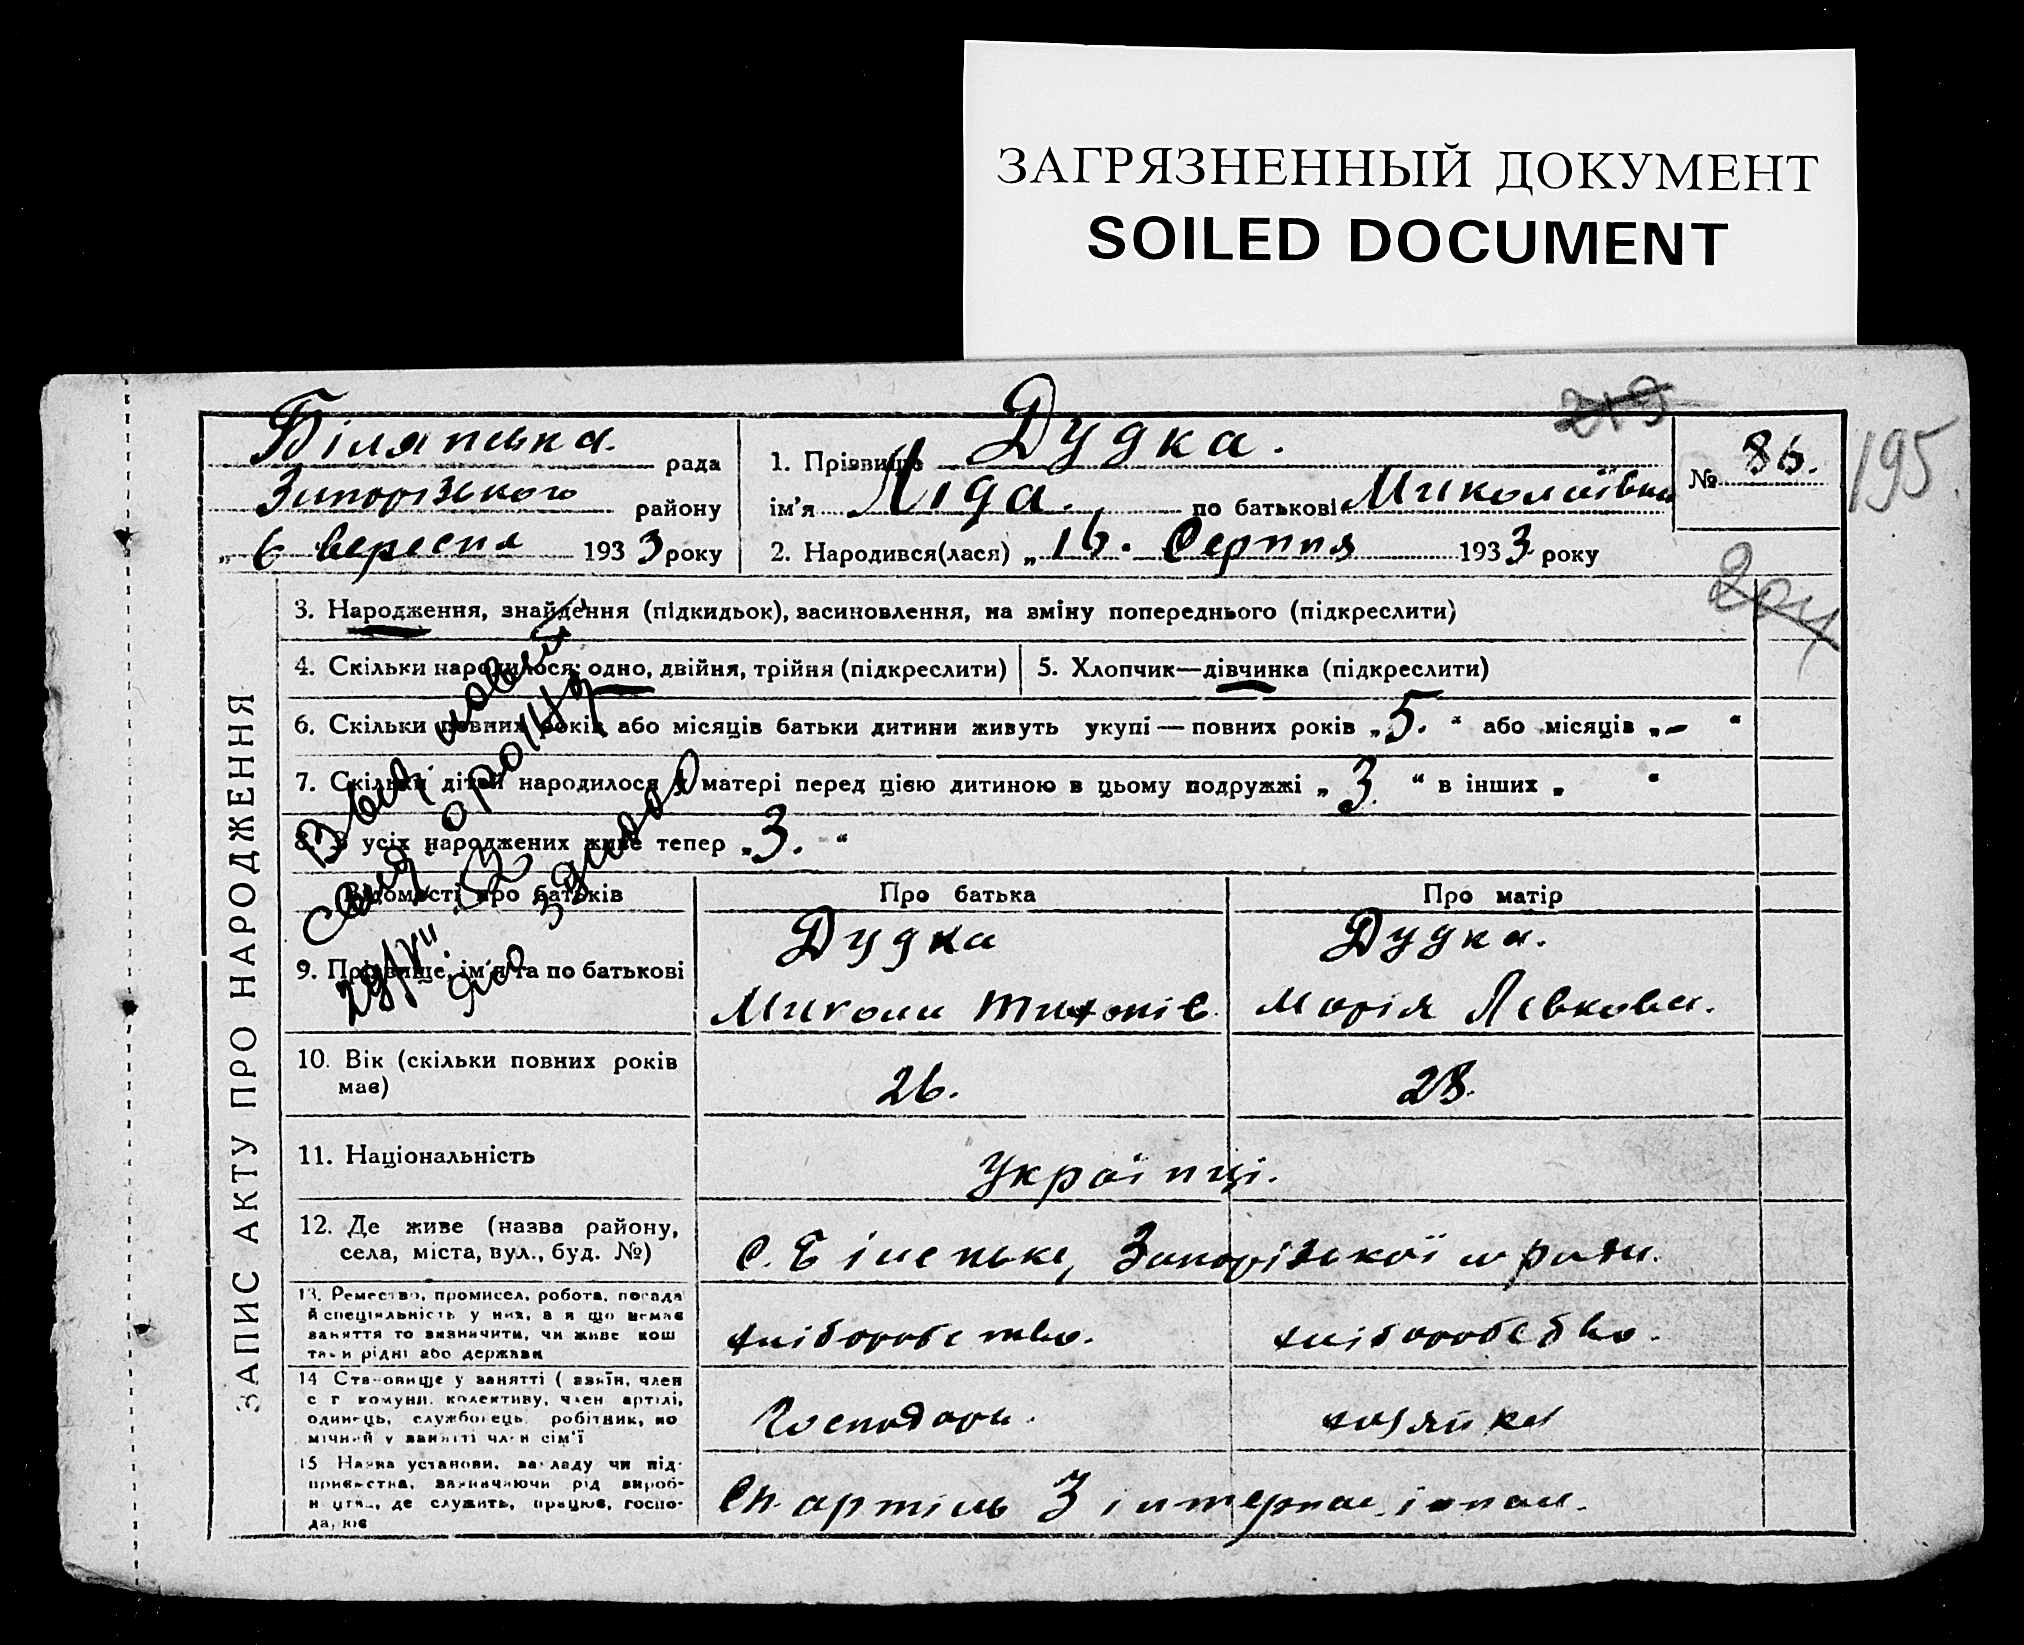 ЗАГРЯЗНЕННЫЙ ДОКУМЕНТ
SOILED DOCUMENT
219
195
204
Біляньська рада
Запорізького району
„ 6 вересня 1933 року
1. Прізвище Дудка.
ім'я Ліда. по батькові Миколаївна
№ 86.
2. Народився(лася) „16. Серпня 1933 року
ЗАПИС АКТУ ПРО НАРОДЖЕННЯ
3. Народження, знайдення (підкидьок), засиновлення, на зміну попереднього (підкреслити)
4. Скільки народилося: одно, двійня, трійня (підкреслити)
5. Хлопчик—дівчинка (підкреслити)
6. Скільки повних років або місяців батьки дитини живуть укупі — повних років „5.“ або місяців „–“
7. Скільки дітей народилося у матері перед цією дитиною в цьому подружжі „3.“ в інших „ “
8. З усіх народжених живе тепер „3.“
Відомості про батьків
Про батька
Про матір
9. Прізвище, ім'я та по батькові
Дудка
Микола Тихонів
Дудка.
Марія Левкова.
10. Вік (скільки повних років має)
26.
28.
11. Національність
Українці.
12. Де живе (назва району,
села, міста, вул., буд. №)
с. Біленьке, Запорізької м ради.
13. Ремество, промисел, робота, посада
й спеціяльність у них, а я що немає
заняття то визначити, чи живе кош
том рідні або держави
хліборобство.
хліборобство.
14 Становище у занятті ( хазяїн, член
с г комуни, колективу, член артілі,
одинець, службовець, робітник, по
мічний у занятті член сім'ї
Господарь.
хозяйка
15 Назва установи, закладу чи під-
приємства, зазначаючи рід вироб-
н цтва, де служить, працює, госпо-
дарює
Сп. артіль 3 інтернаціонал.